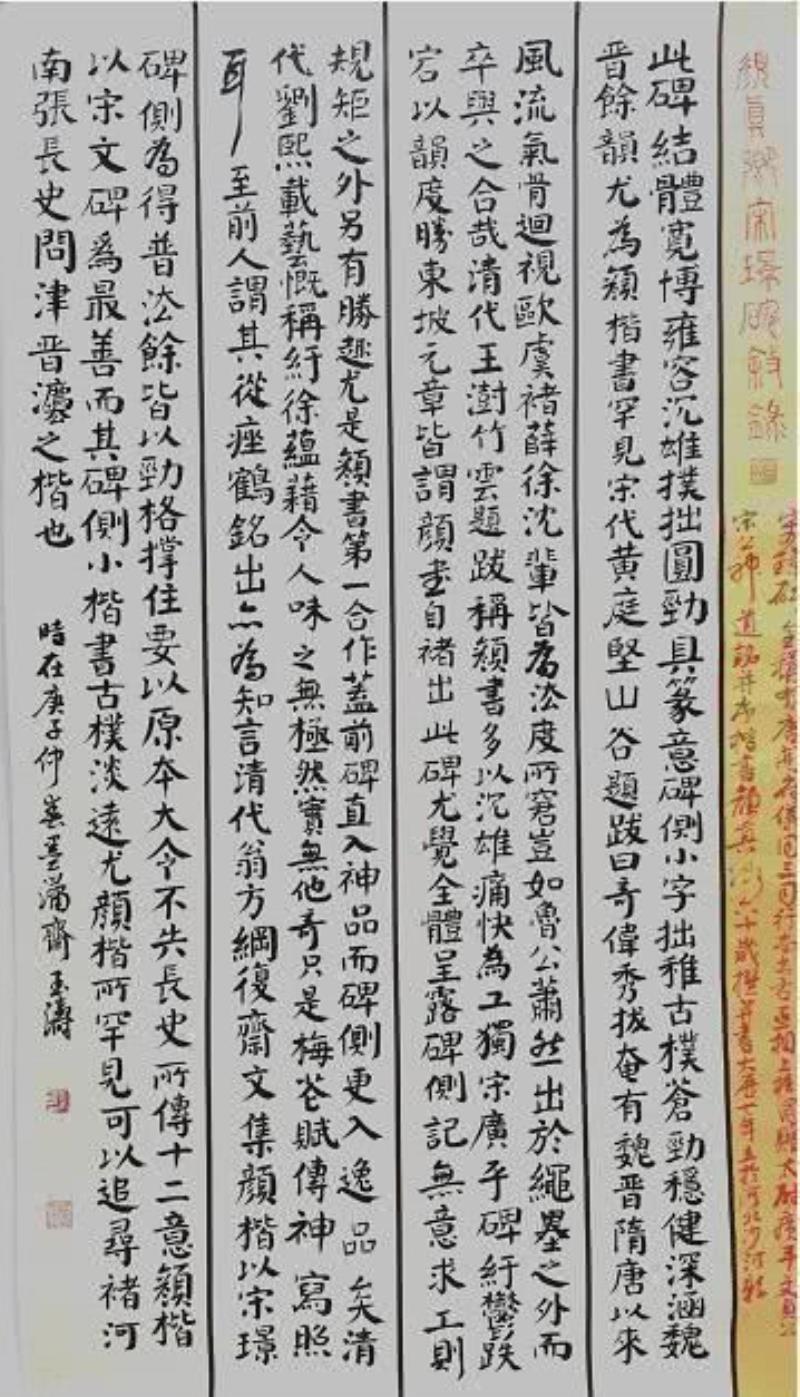 顏真卿宋璟碑敘錄
宋璟碑全稱大唐故開府儀同三司行尚書右丞相上柱國贈太尉廣平文貞公
宋公神道碑并序楷書顏真卿六十歲撰并書大曆七年立於河北沙河縣
此碑結體寬博雍容沉雄撲拙圓勁具篆意碑側小字拙稚古樸蒼勁穩健深涵魏
晉餘韻尤為顏楷書罕見宋代黄庭堅山谷題跋曰奇偉秀拔奄有魏晉隋唐以來
風流氣骨迴視歐虞褚薛徐沈輩皆為法度所窘豈如魯公蕭然出於繩墨之外而
卒與之合哉清代王澍竹雲題跋稱顏書多以沉雄痛快為工獨宋廣平碑紆鬱跌
宕以韻度勝東坡元章皆謂顏書自褚出此碑尤覺全體呈露碑側記無意求工則
規矩之外另有勝趣尤是顏書第一合作蓋前碑直入神品而碑側更入逸品矣清
代劉熙載藝概稱紆徐蘊藉令人味之無極然實無他奇只是梅花賦傳神寫照
耳至前人謂其從瘞鶴銘出亦為知言清代翁方綱復齋文集顏楷以宋璟
碑側為得晉法餘皆以勁格撐住要以原本大令不失長史所傳十二意顏楷
以宋文碑為最善而其碑側小楷書古樸淡遠尤顏楷所罕見可以追尋褚河
南張長史問津晉灋之楷也
時在庚子仲春墨滿齋玉濤